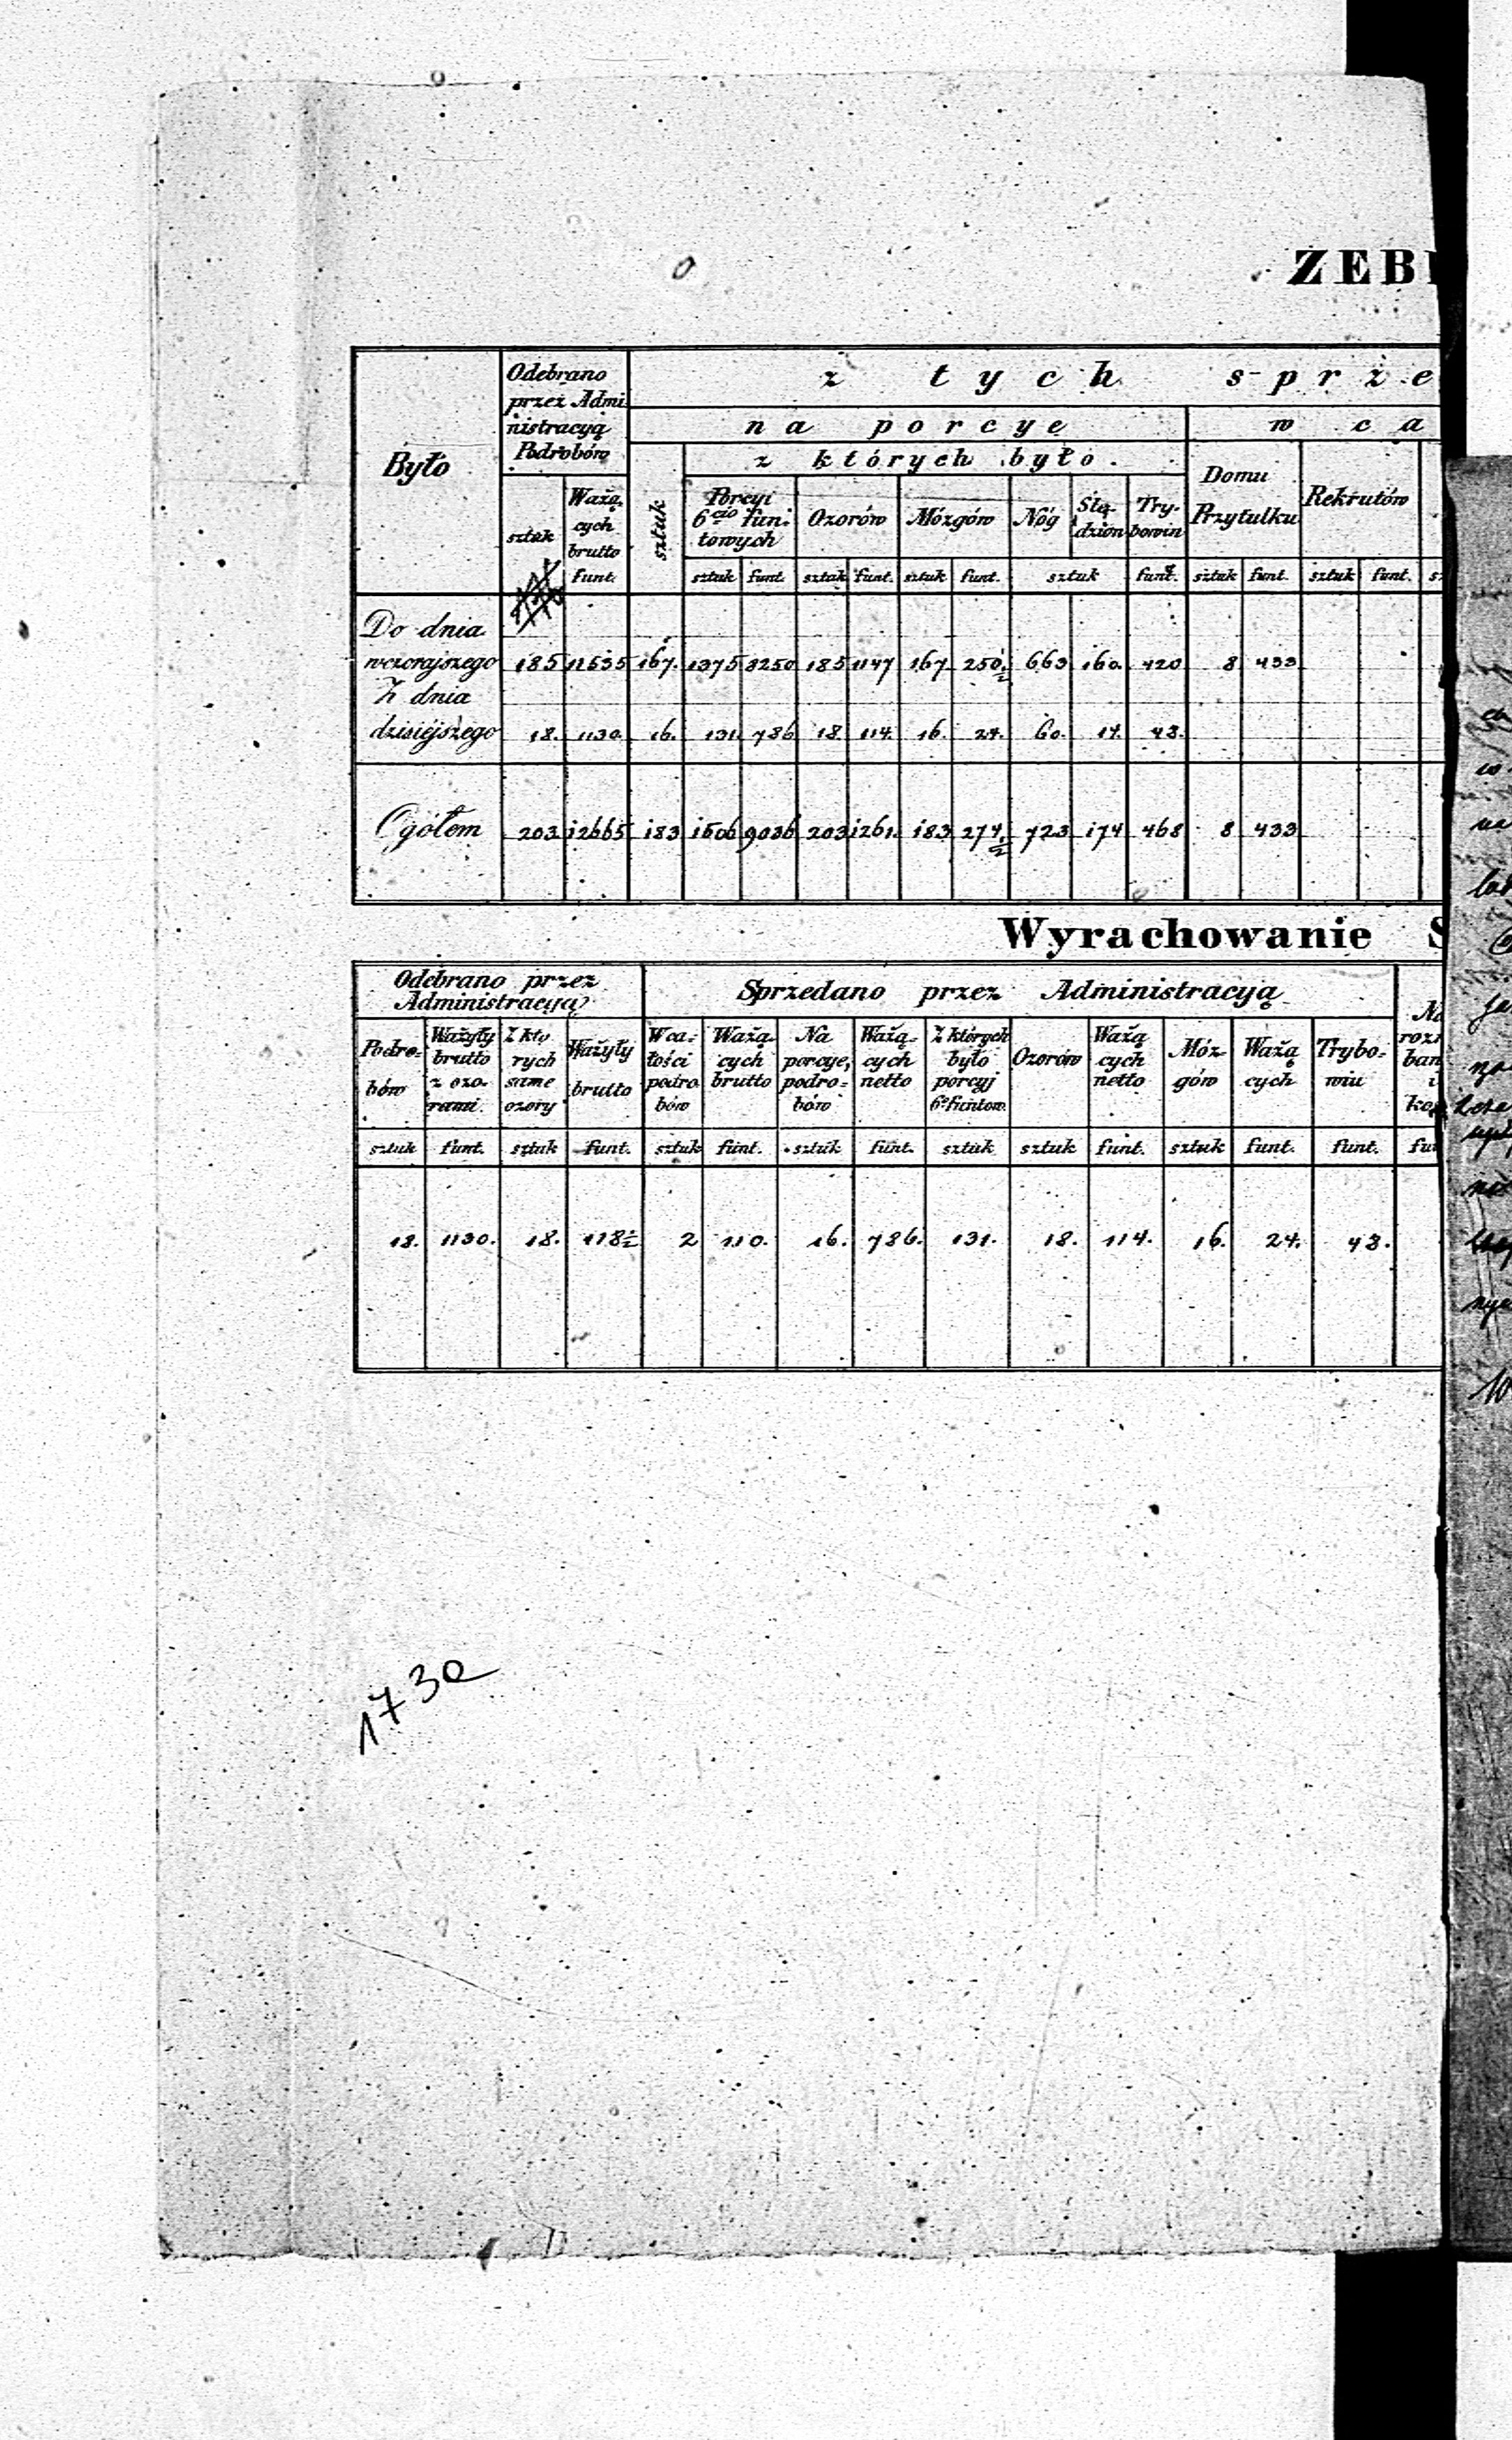 ZEB
z tych sprze
Było
Odebrano przez Admi nistracyą Podrobów
na porcye
w ca
z których było
sztuk
Ważą cych brutto funt.
sztuk
Porcyi 6cio funtowych
Ozorów
Mózgów
Nóg
Slę- dzion
Try- bowin
Domu Przytulku
Rekrutów
sztuk funt. sztuk funt. sztuk funt. sztuk funt. sztuk funt. sztuk funt.
Do dnia
wczorajszego 185 11535 167. 1375 8250 185 1147 167 250½ 663 160. 420 8 433
Z dnia
dzisiejszego 18. 1130. 16. 131 786 18 114. 16. 24. 60. 14. 48.
Ogółem 203 12665 183 1506 9036 203 1261. 183 274½ 723 174 468 8 433
Wyrachowanie S
Odebrano przez Administracyją
Sprzedano przez Administracyą
Podro- bów
Ważyły brutto z ozo- rami.
Z któ rych same ozory
Ważyły brutto
W ca- łości podro bów
Ważą- cych brutto
Na porcye, podro- bów
Ważą- cych netto
Z których było porcyj 6o funtow.
Ozorów
Ważą cych netto
Móz- gów
Ważą cych
Trybo- wiu
sztuk funt. sztuk funt. sztuk funt. sztuk funt. sztuk sztuk funt. sztuk funt. funt.
18. 1130. 18. 118½ 2 110. 16. 786. 131. 18. 114. 16. 24. 48.
173a